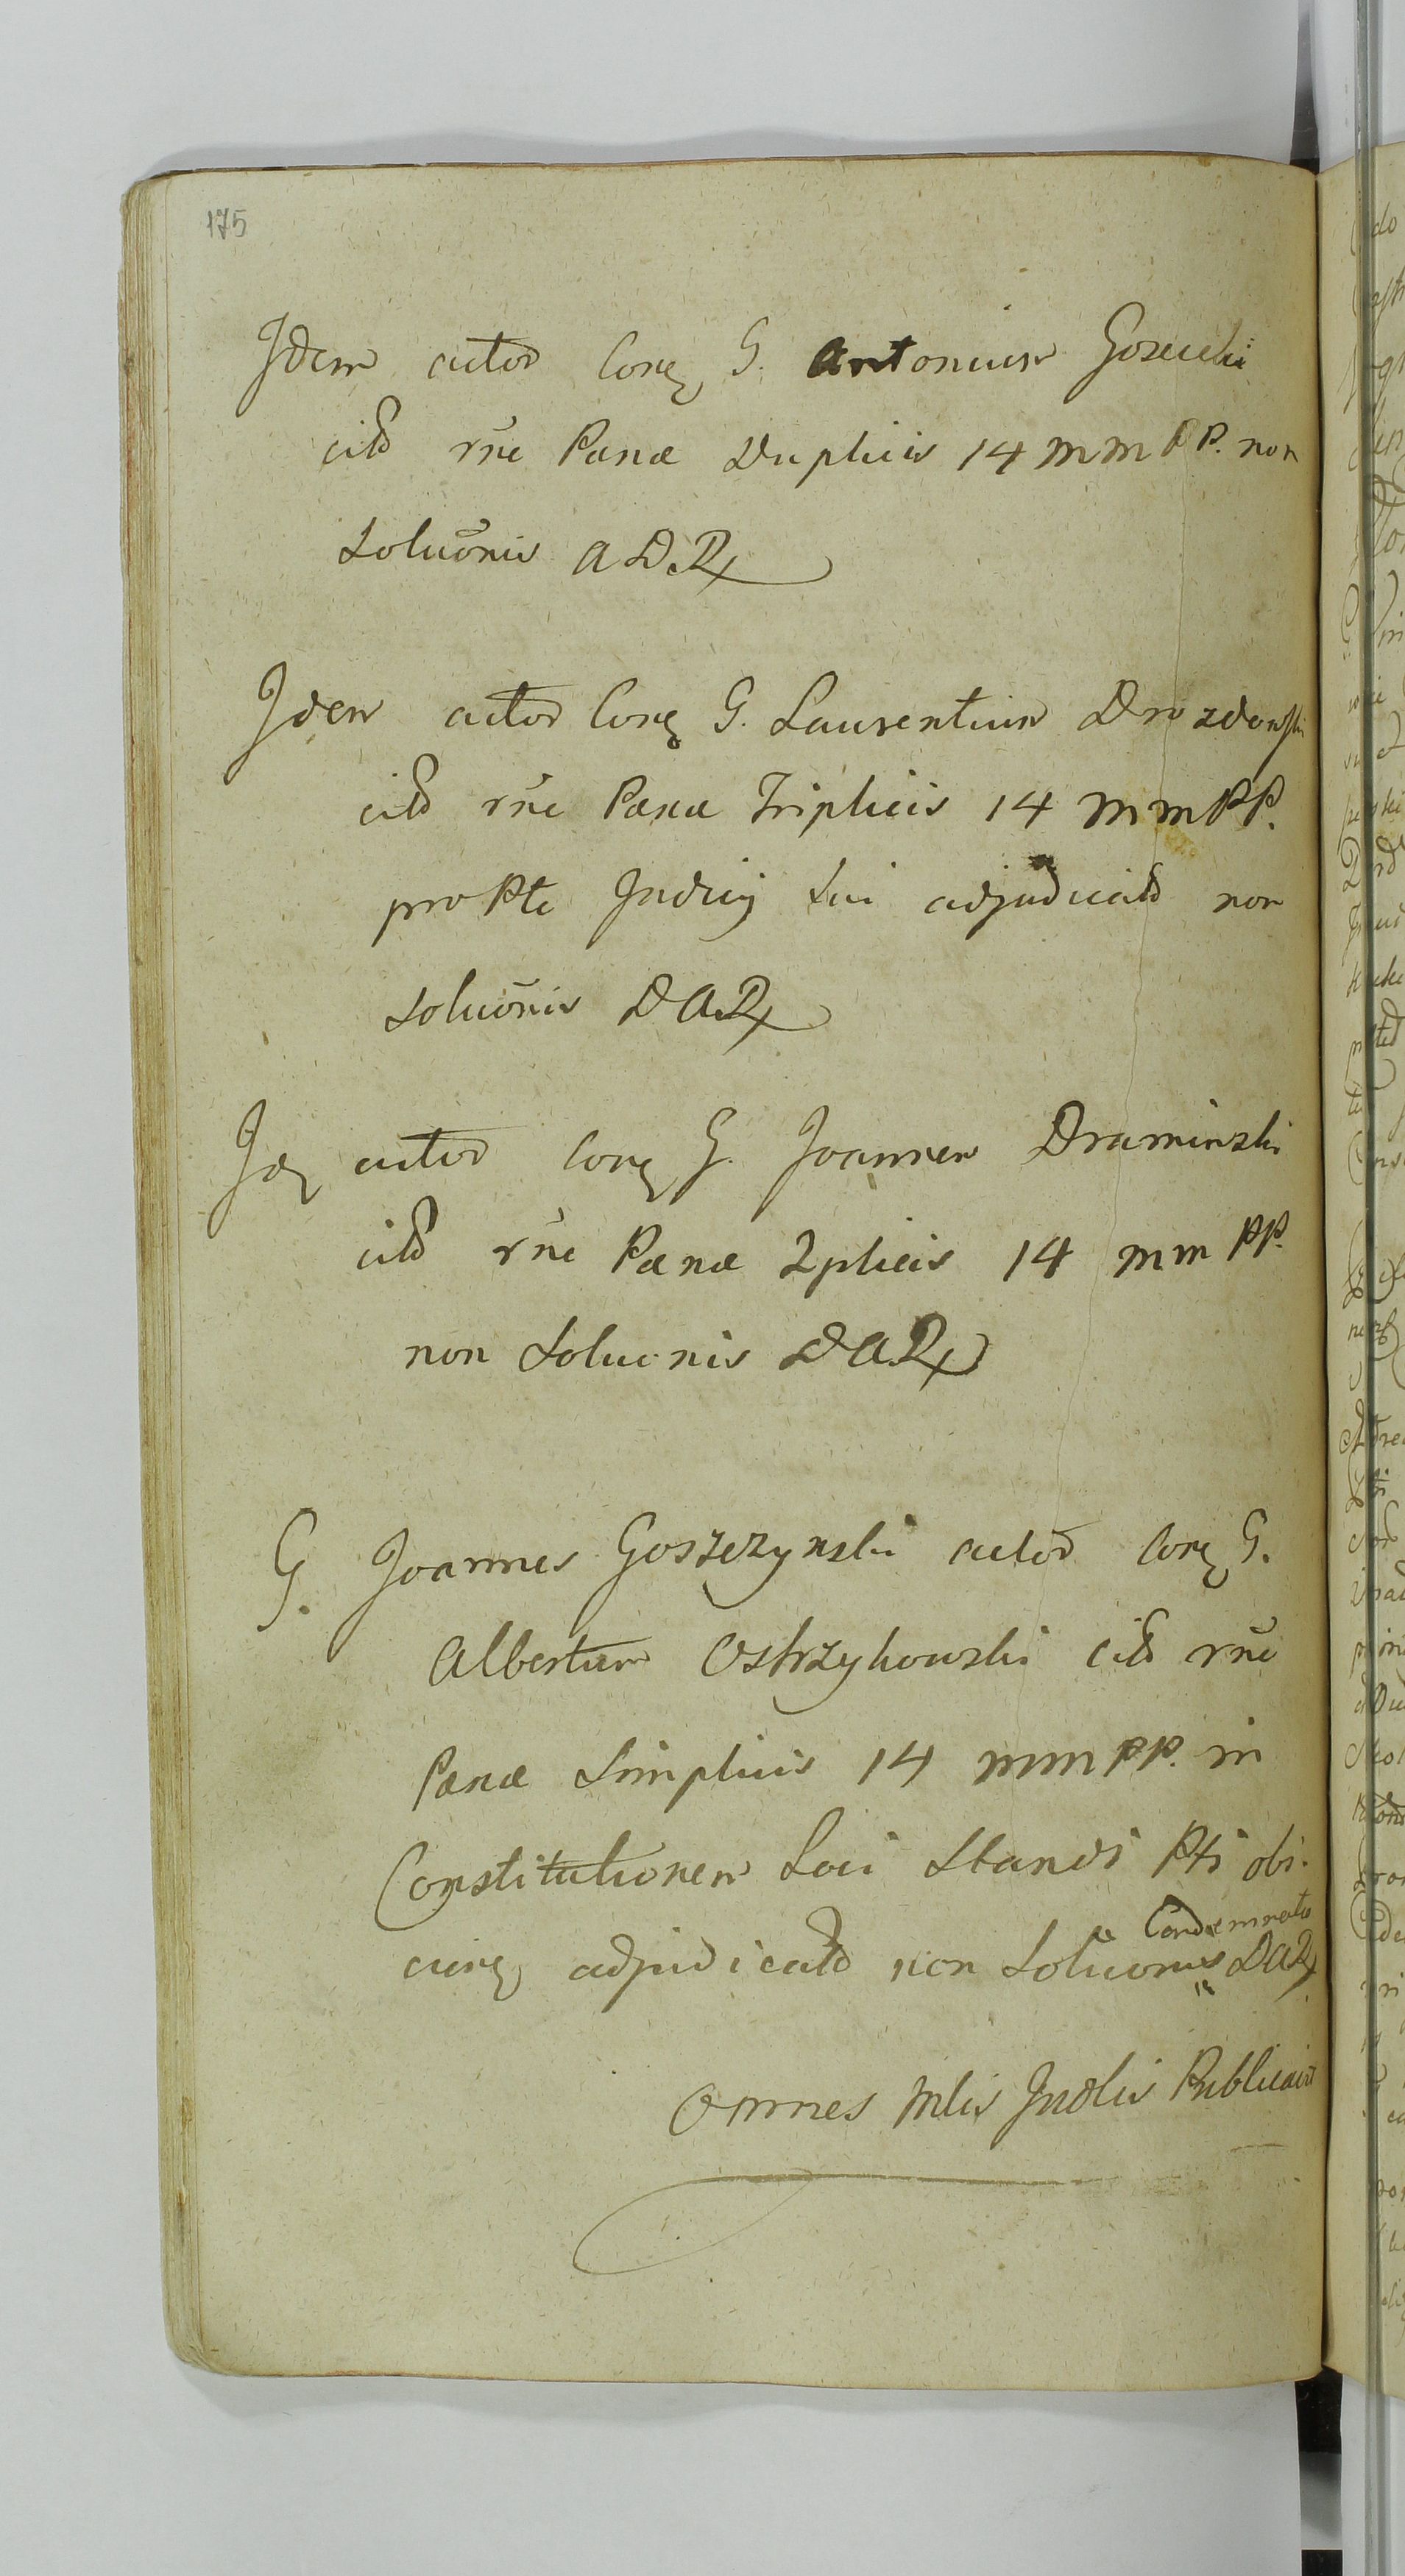 175
Idem actor Conq G. Antonium Gosecki
citt rne Panæ Duplicis 14 mm PP. non
Soluonis A D Rx
Idem actor Conq G. Laurentium Drozdowski
citt rne Panæ Triplicis 14 mm PP.
pro Pte Judicij Sui adjudicatt non
Soluonis D A Rx
Idq actor Conq G. Joannem Draminski
citt rne Panæ 2plicis 14 mm PP.
non Soluonis D A Rx
G. Joannes Goszczynski actor Conq G.
Albertum Ostrzykowski citt rne
Panæ Simplicis 14 mm PP. in
Constitutionem Loci Standi Pti obi-
cienq adjudicatt non Soluonis Condemnatio D A Rx
Omnes Mlis Judlis Publicavit